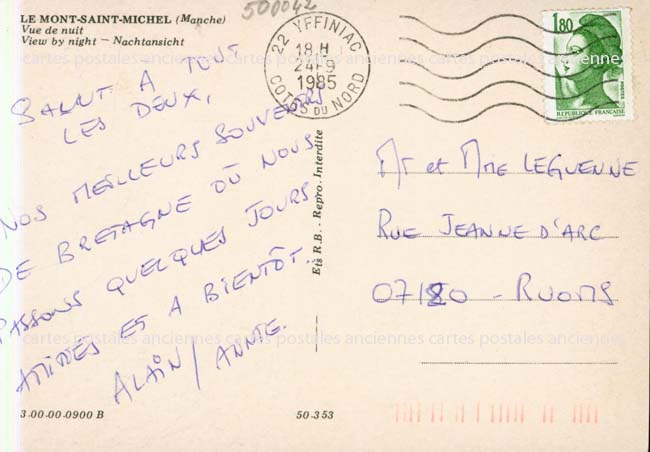 LE MONT-SAINT-MICHEL (Manche)
Vue de nuit
View by night – Nachtansicht
500042
22 YFFINIAC
18 H
24-9
1985
COTES DU NORD
1,80
POSTES
REPUBLIQUE FRANÇAISE
cartes postales anciennes cartes postales anciennes cartes postales anciennes
SALUT A TOUT
LES DEUX,
NOS MEILLEURS SOUVENIRS
DE BRETAGNE OÙ NOUS
PASSONS QUELQUES JOURS
AMITIÉS ET A BIENTÔT...
ALAIN / ANNIE.
Ets R.B. - Repro. Interdite
Mr et Mme LEGUENNE
RUE JEANNE D'ARC
07120 - RUOMS
cartes postales anciennes cartes postales anciennes cartes postales anciennes
3.00.00.0900 B
50-353